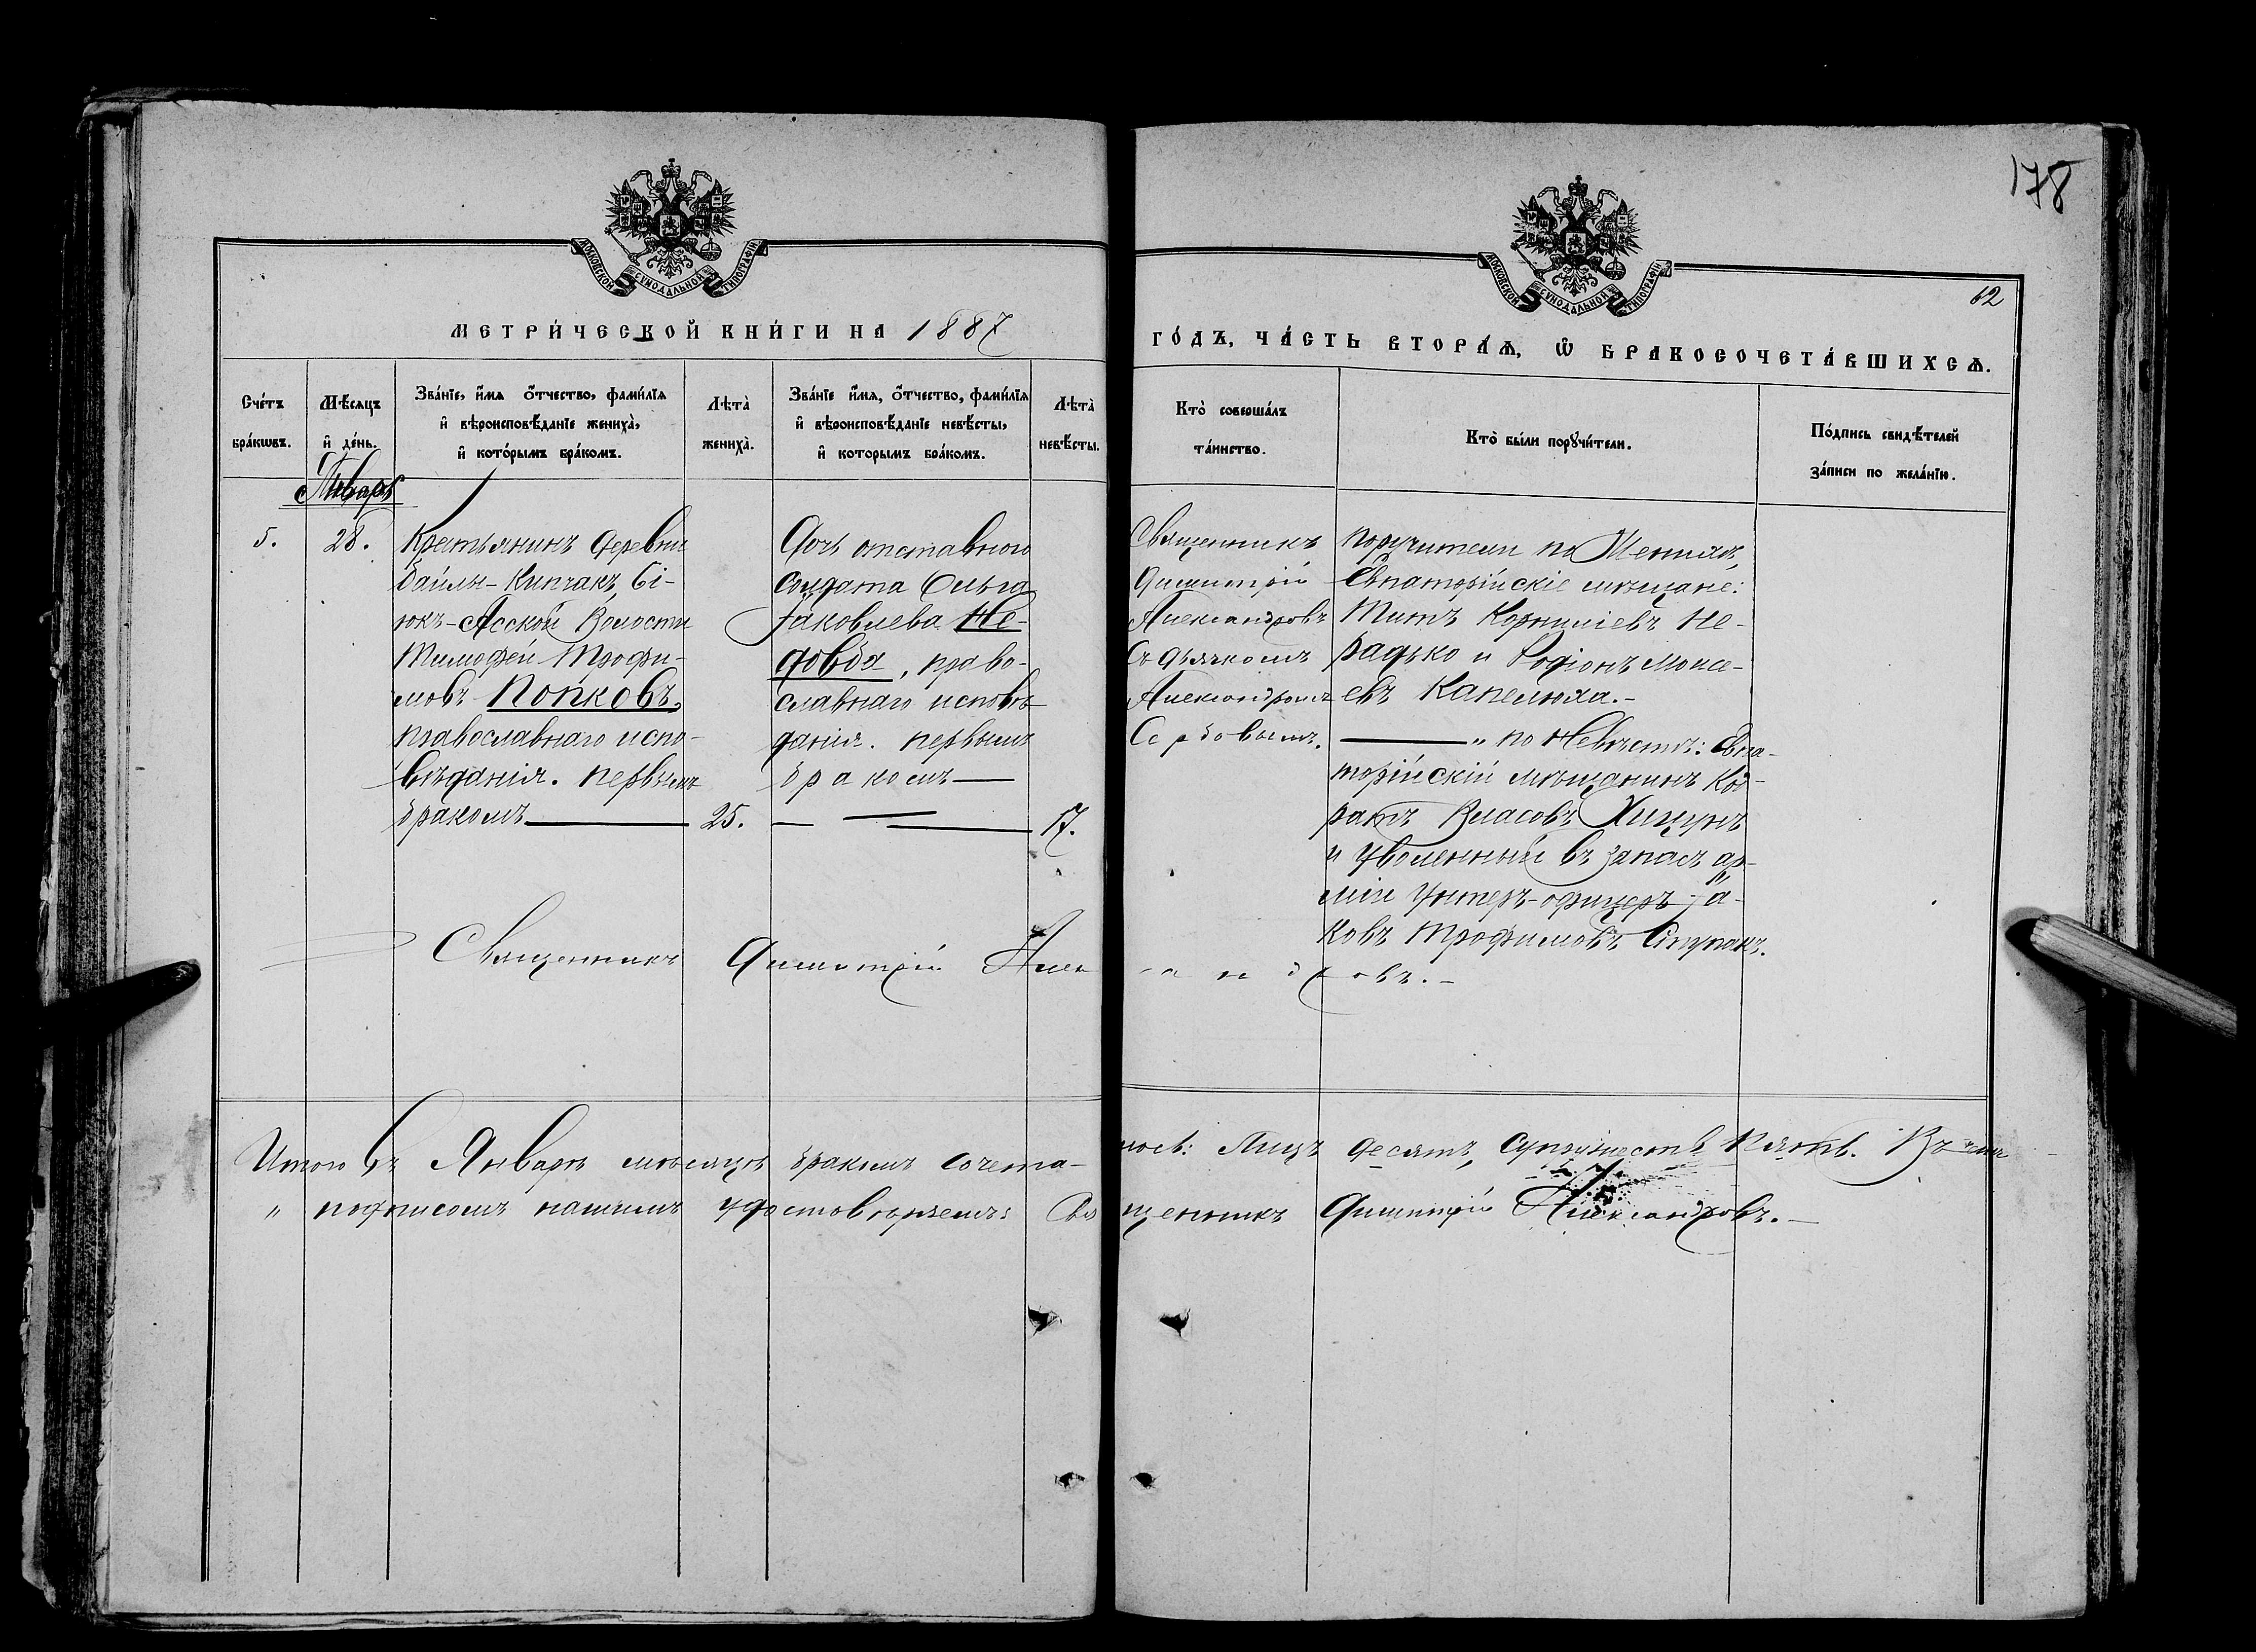 178
МОСКОВСКОЙ СѴНОДАЛЬНОЙ ТИПОГРАФІИ
МОСКОВСКОЙ СѴНОДАЛЬНОЙ ТИПОГРАФІИ
62
МЕТРИ́ЧЕСКОЙ КНИ́ГИ НА 1887
ГО́ДЪ, ЧА́СТЬ ВТОРА́Ѧ, Ѿ БРАКОСОЧЕТА́ВШИХСѦ.
Сче́тъ
бра́кѡвъ.
Мѣ́сяцъ
и҆ де́нь.
Зва́нїе, и҆́мя ѻ҆́тчество, фами́лїя
и҆ вѣроисповѣ́данїе жениха̀,
и҆ кото́рымъ бра́комъ.
Лѣта̀
жениха̀.
Зва́нїе и҆́мя, ѻ҆́тчество, фами́лїя
и҆ вѣроисповѣ́данїе невѣ́сты,
и҆ которымъ бра́комъ.
Лѣта̀
невѣ́сты.
Кто̀ соверша́лъ
та́инство.
Кто̀ бы́ли порꙋчи́тели.
По́дпись свидѣ́телей
за́писи по жела́нїю.
Январь
5.
28.
Крестьянинъ деревни
Байлы-Кипчакъ, Бі-
юкъ-Асской Волости
Тимофей Трофи-
мовъ Попковъ,
православнаго испо-
вѣданія. первымъ
бракомъ
25.
Дочь отставного
солдата Ольга
Яковлева Не-
довба, право-
славнаго исповѣ-
данія. первымъ
бракомъ
17.
Священникъ
Димитрій
Александровъ
Съ дьячкомъ
Александромъ
Сербовымъ.
поручители по Женихѣ,
Евпаторійскіе мѣщане:
Титъ Корниліевъ Не-
радько и Родіонъ Моисе-
евъ Капелюха.-
" по Невѣстѣ: Евпа-
торійскій мѣщанинъ Код-
ратъ Власовъ Хицунъ
и уволенный въ запасъ ар-
міи Унтеръ-офицеръ Я-
ковъ Трофимовъ Ступакъ.
Священникъ Димитрій Александровъ.-
Итого въ Январѣ мѣсяцѣ бракомъ сочета-
лось: Лицъ десять, Супружествъ пять. Въ чемъ
" подписомъ нашимъ удостовѣряемъ: Свя
щенникъ Димитрій Александровъ.-